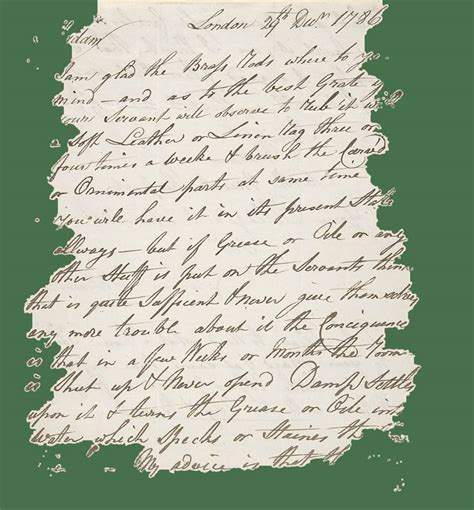 London 29th Decr. 1786
adam
I am glad the Brass Rods where to yo
mind - and as to the best Grate y
our Servant will observe to Rub it w
Soft Leather or Linen Rag three or
four times a weeke & brush the Carved
or Ornimental parts at same time
You will have it in its present State
allways - but if Grease or Oile or any
other Stuff is put on the Servants think
that is quite Safficent & Never give themselves
any more trouble about it the Conciquance
is that in a few Weeks or Months the Room
is Shut up & Never opend Damp Settles
upon it & turns the Grease or Oile into
Water which Specks or Staines th
My advice is that